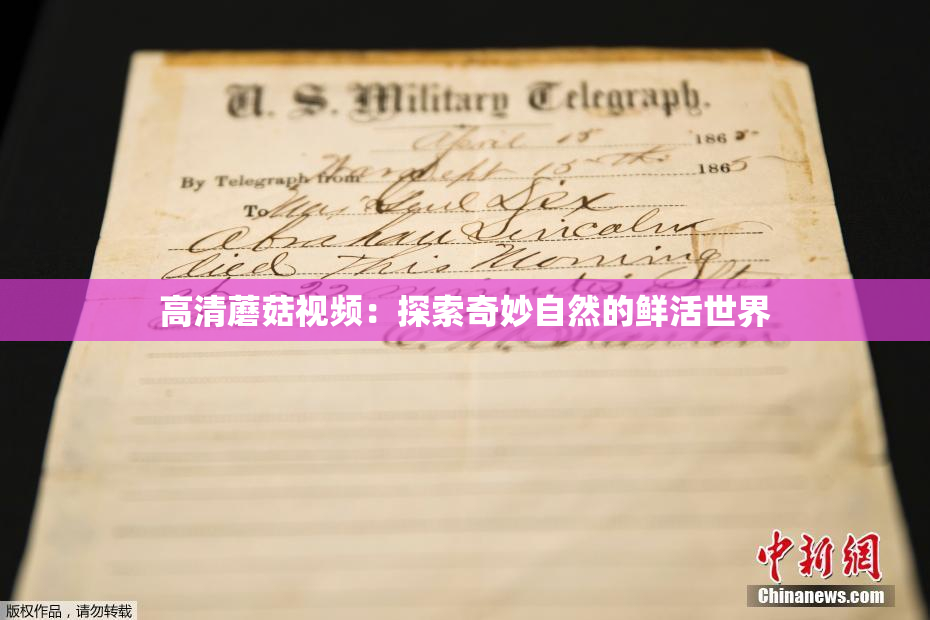 U. S. Military Telegraph.
April 15 1865
By Telegraph from War Dept 15th 1865
To Maj Genl Dix
Abraham Lincoln
died This Morning
at 22 minutes after
高清蘑菇视频：探索奇妙自然的鲜活世界
E. M. Stanton
中新網
Chinanews.com
版权作品，请勿转载